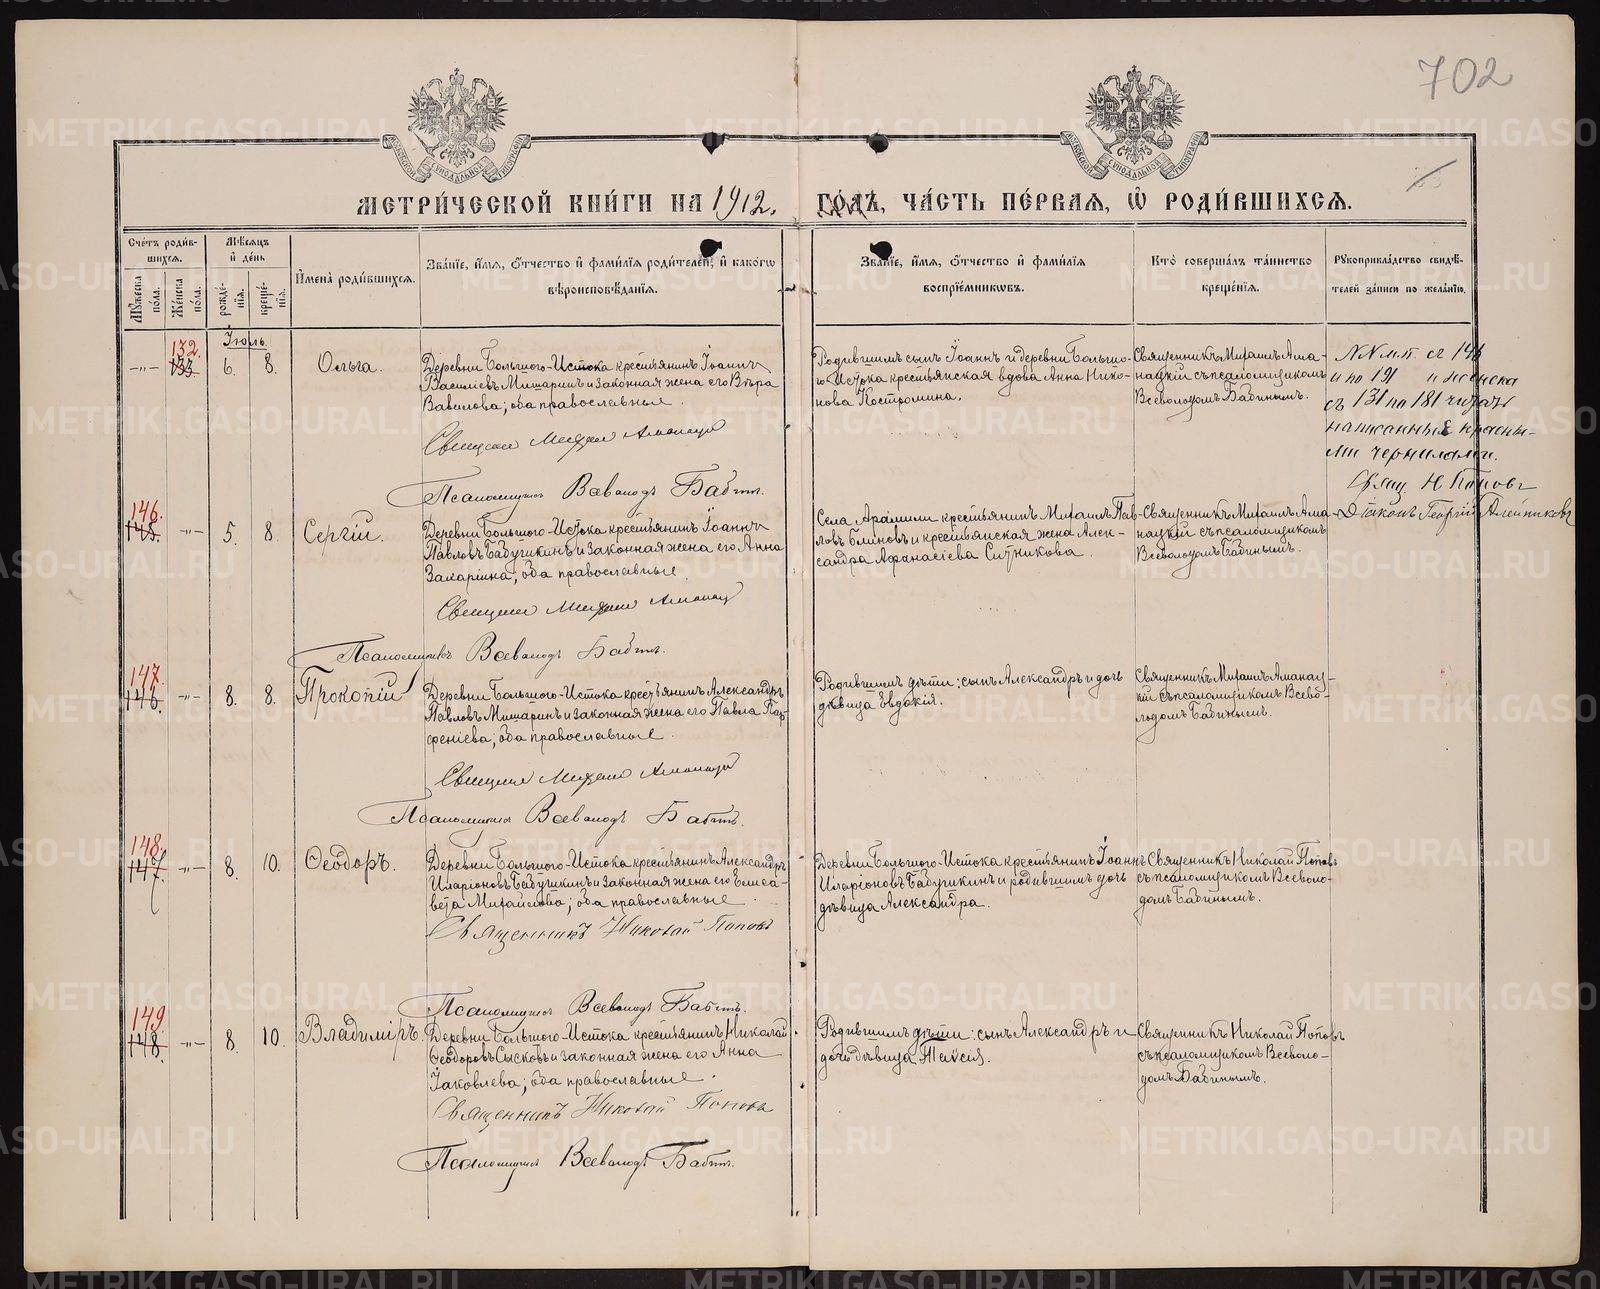 702
МЕТРИ́ЧЕСКОЙ КНИ́ГИ НА 1912. ГО́ДЪ, ЧА́СТЬ ПЕ́РВАЯ, Ѡ҆ РОДИ́ВШИХСѦ.
Сче́тъ роди́в-
шихсѧ.
Мꙋ́жеска по́ла.
Же́нска по́ла.
Мѣ́сѧцъ
и҆ де́нь
рожде́-нїѧ.
креще́-нїѧ.
И҆мена̀ роди́вшихсѧ.
Зва́нїе, и҆́мѧ, ѻ҆́тчество и҆ фами́лїѧ роди́телей, и҆ како́гѡ
вѣроисповѣ́данїѧ.
Зва́нїе, и҆́мѧ, ѻ҆́тчество и҆ фами́лїѧ
воспрїе́мникѡвъ.
Кто̀ соверша́лъ та́инство
креще́нїѧ.
Рꙋкоприкла́дство свидѣ́-
телей за́писи по жела́нїю.
Іюль
132.
-"- 133. 6. 8. Ольга.
Деревни Большого-Истока крестьянинъ Іоаннъ
Василіевъ Мишаринъ и законная жена его Вѣра
Вавилова; оба православные.
Священникъ Михаилъ
Псаломщикъ Всеволодъ Бабинъ.
Родившимъ сынъ Іоаннъ и деревни Большо-
го-Истока крестьянская вдова Анна Нико-
нова Костромина.
Священникъ Михаилъ Ама-
нацкій съ псаломщикомъ
Всеволодомъ Бабинымъ.
NN м.п. съ 146
и по 191 и женска
съ 131 по 181 читать
написанные красны-
ми чернилами.
Свящ. Н Поповъ
Діаконъ Георгій Алейниковъ
146.
145. -"- 5. 8. Сергій.
Деревни Большого-Истока крестьянинъ Іоаннъ
Павловъ Бабушкинъ и законная жена его Анна
Захаріина; оба православные.
Священникъ Михаилъ
Псаломщикъ Всеволодъ Бабинъ.
Села Арамили крестьянинъ Михаилъ Пав-
ловъ Блиновъ и крестьянская жена Алек-
сандра Афанасіева Ситникова.
Священникъ Михаилъ Ама-
нацкій съ псаломщикомъ
Всеволодомъ Бабинымъ.
147.
146. -"- 8. 8. Прокопій
Деревни Большого-Истока крестьянинъ Александръ
Павловъ Мишаринъ и законная жена его Павла Пар-
феніева; оба православные.
Священникъ Михаилъ
Псаломщикъ Всеволодъ Бабинъ.
Родившимъ дѣти: сынъ Александръ и дочь
дѣвица Евдокія.
Священникъ Михаилъ Аманац-
кій съ псаломщикомъ Всево-
лодомъ Бабинымъ.
148.
147. -"- 8. 10. Ѳеодоръ.
Деревни Большого-Истока крестьянинъ Александръ
Иларіоновъ Бабушкинъ и законная жена его Елиса-
вета Михайлова; оба православные.
Священникъ Николай Поповъ
Псаломщикъ Всеволодъ Бабинъ.
Деревни Большого-Истока крестьянинъ Іоаннъ
Иларіоновъ Бабушкинъ и родившимъ дочь
дѣвица Александра.
Священникъ Николай Поповъ
съ псаломщикомъ Всеволо-
домъ Бабинымъ.
149
148. -"- 8. 10. Владиміръ.
Деревни Большого-Истока крестьянинъ Николай
Ѳеодоровъ Сысковъ и законная жена его Анна
Іаковлева; оба православные.
Священникъ Николай Поповъ
Псаломщикъ Всеволодъ Бабинъ.
Родившимъ дѣти: сынъ Александръ и
дочь дѣвица Таисія.
Священникъ Николай Поповъ
съ псаломщикомъ Всеволо-
домъ Бабинымъ.
METRIKI.GASO-URAL.RU